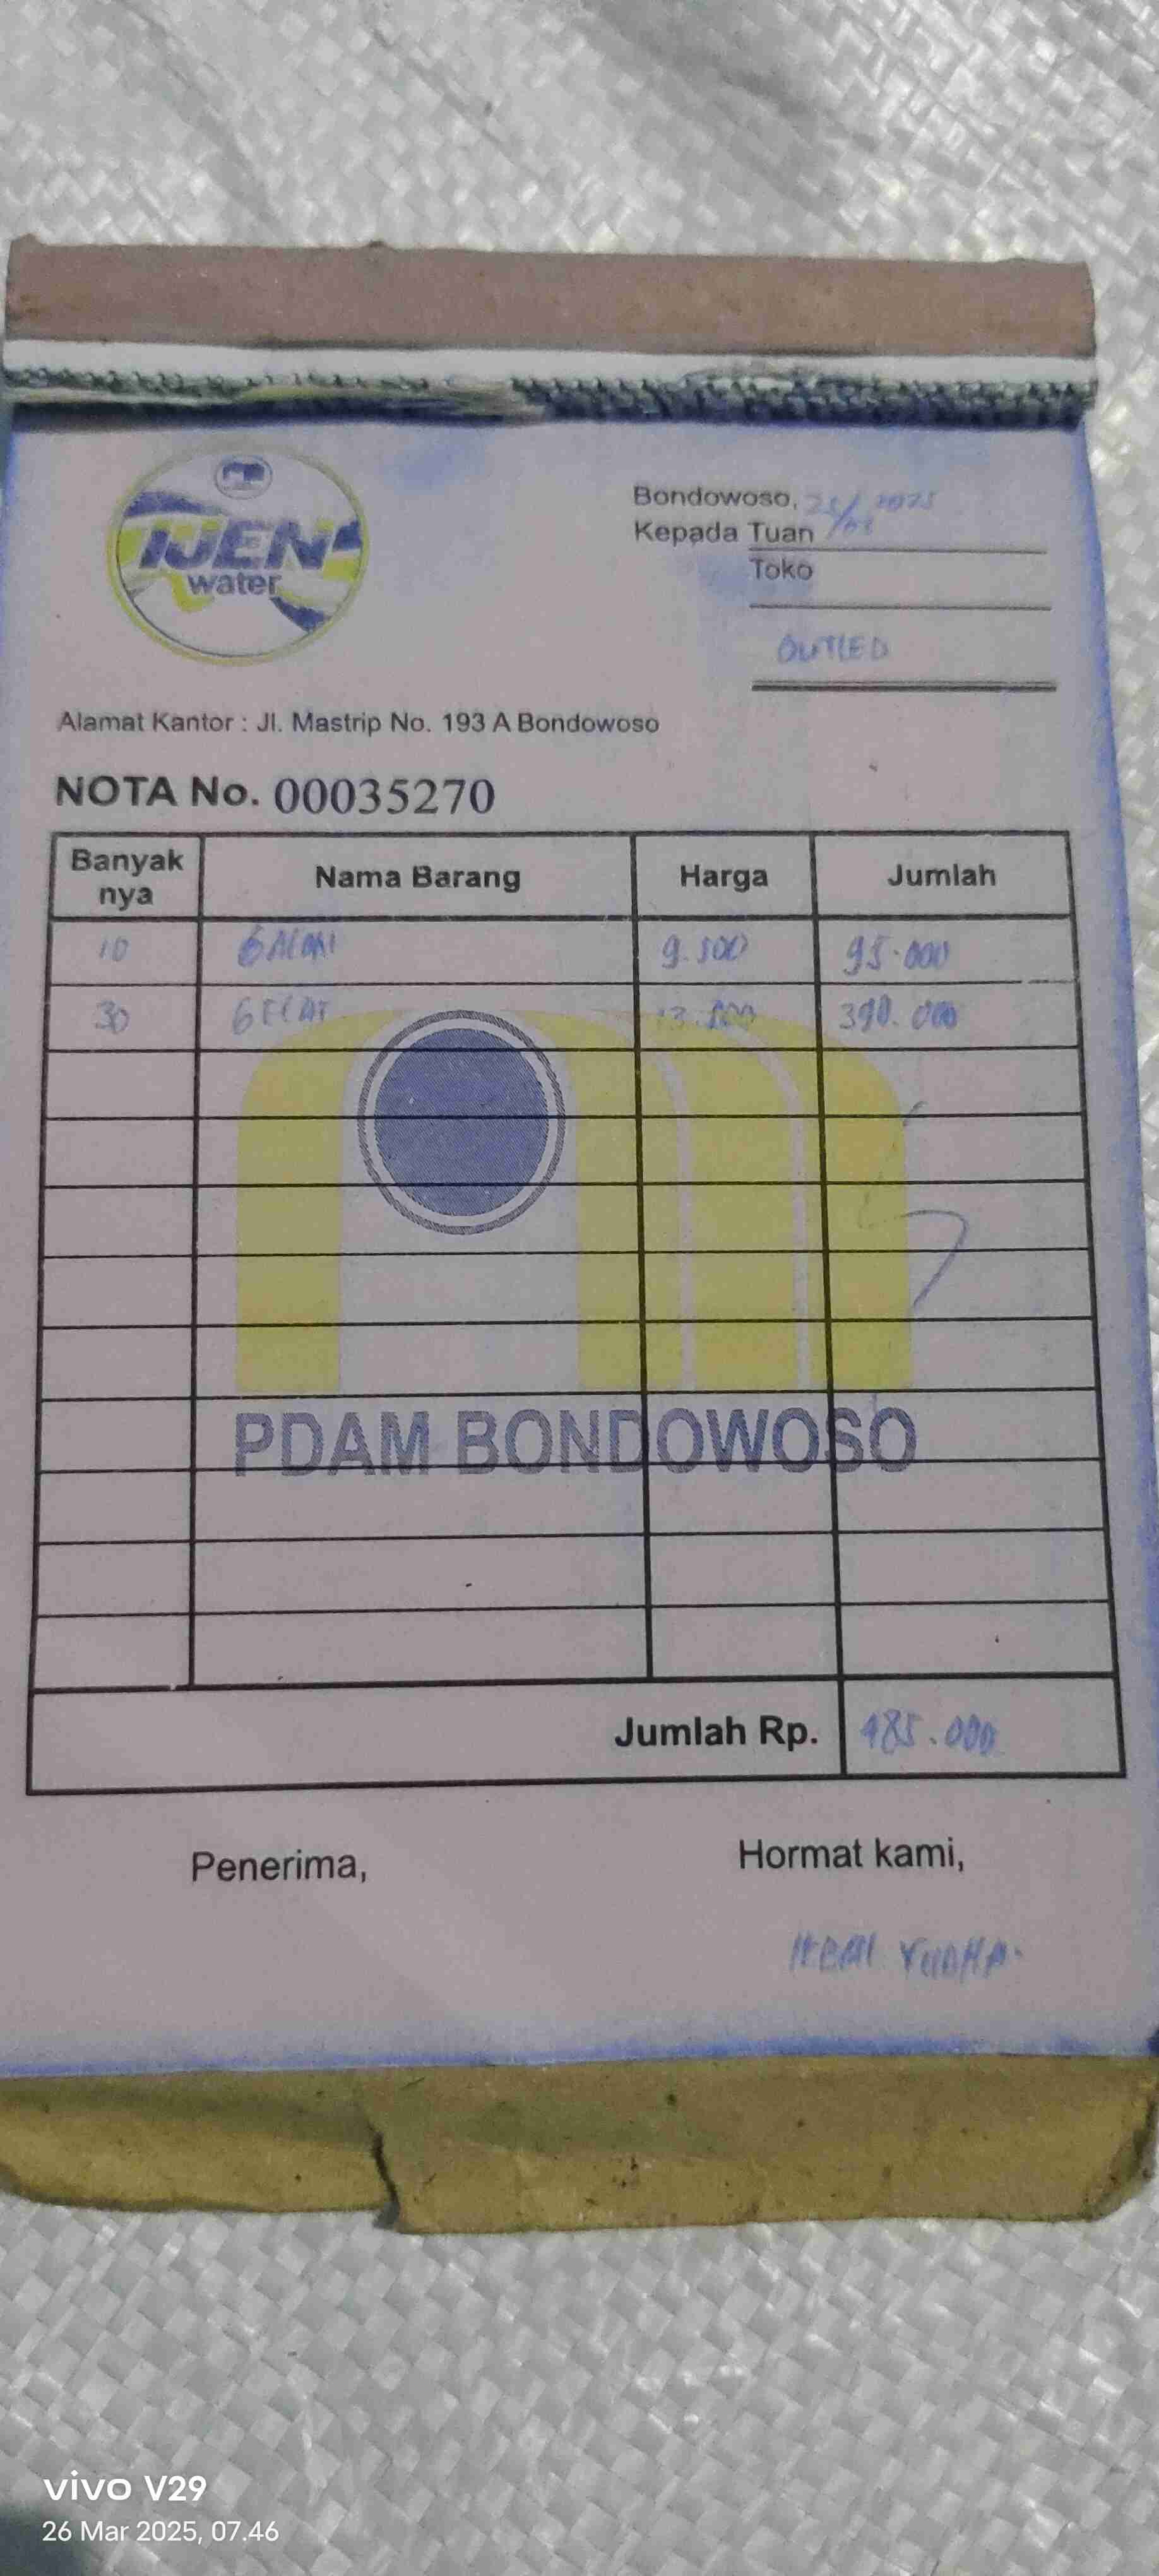 IJEN
water
Bondowoso, 25/03 2025
Kepada Tuan
Toko
OUTLED
Alamat Kantor : Jl. Mastrip No. 193 A Bondowoso
NOTA No. 00035270
Banyak nya Nama Barang Harga Jumlah
10 GALON 9.500 95.000
30 GELAS 13.000 390.000
PDAM BONDOWOSO
Jumlah Rp. 485.000
Penerima, Hormat kami,
YUDHA.
vivo V29
26 Mar 2025, 07.46